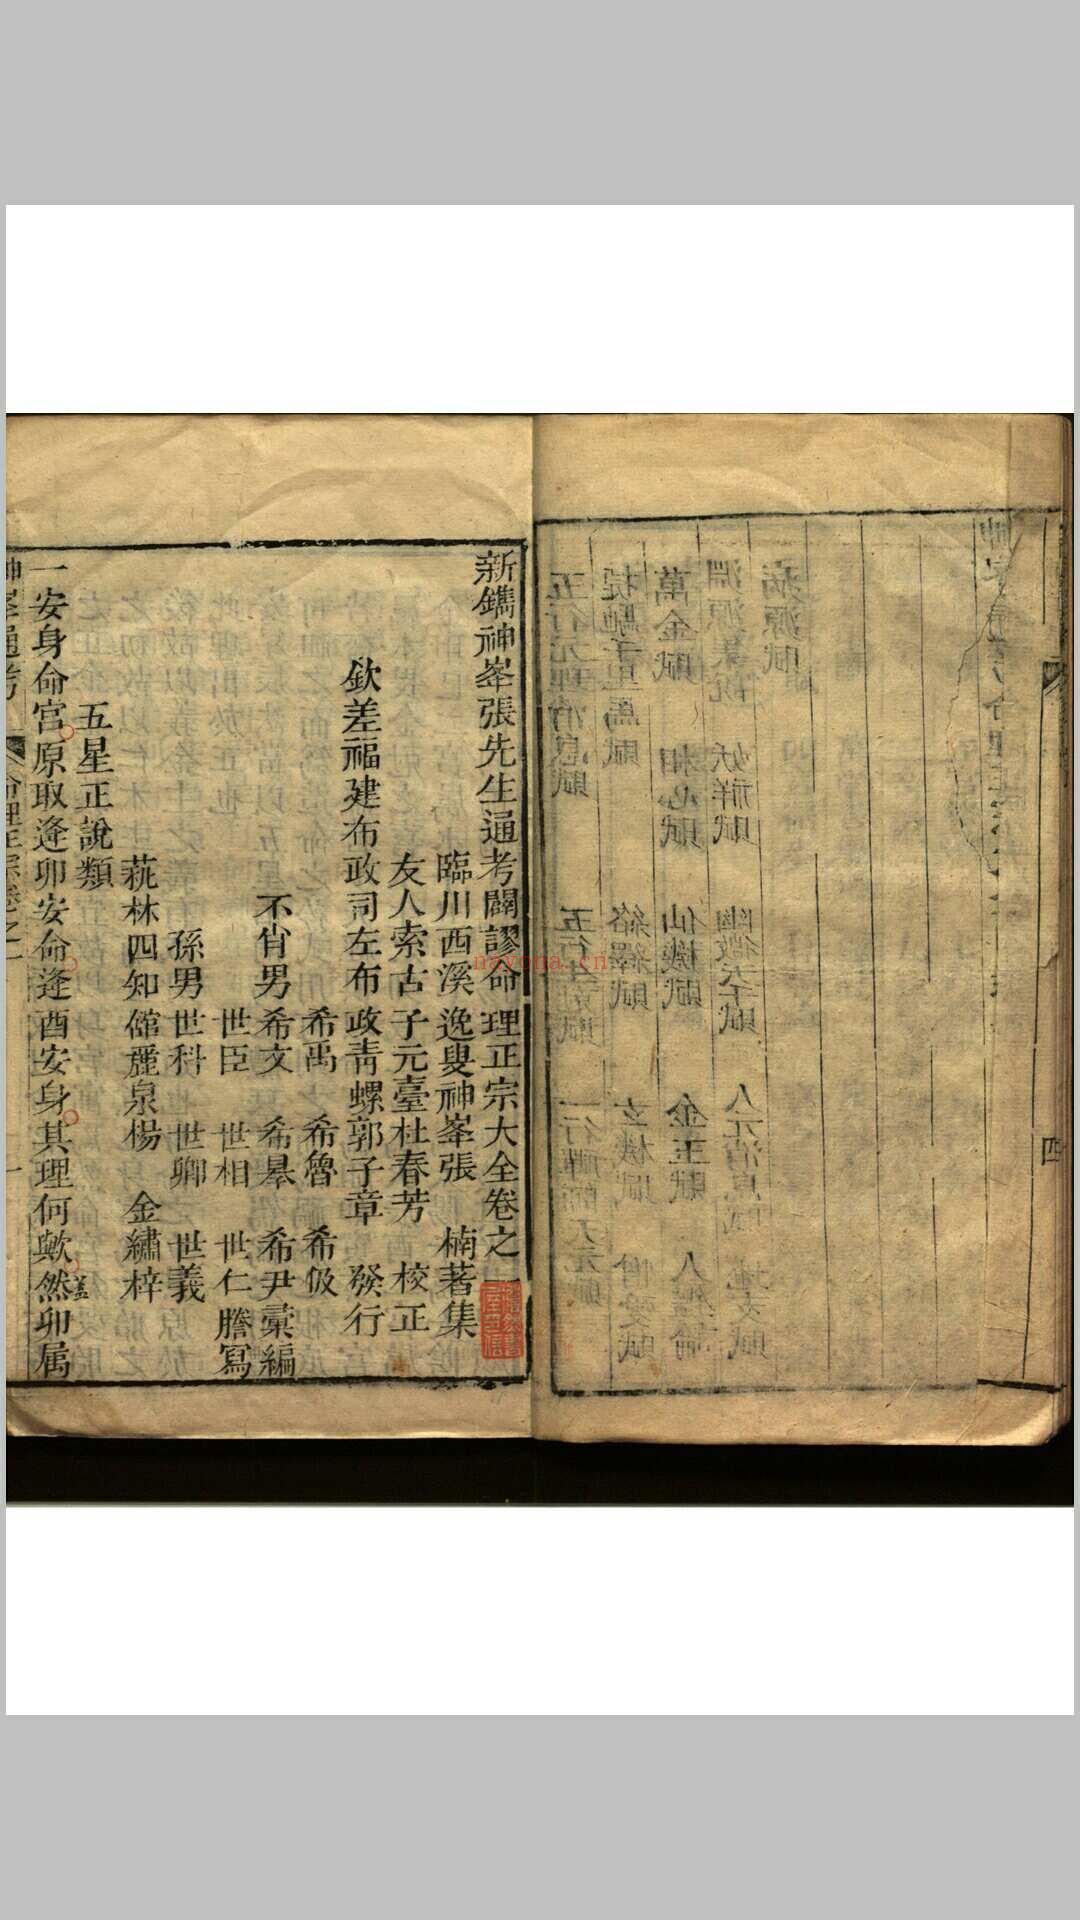 新鐫神峯張先生通考闢謬命理正宗大全卷之一
臨川西溪逸叟神峯張 楠著集
友人索古子元臺杜春芳 校正
欽差福建布政司左布政青螺郭子章 發行
希禹 希魯 希伋
不肖男 希文 希皋 希尹彙編
世臣 世相 世仁謄寫
孫男 世科 世卿 世義
萟林四知舘麗泉楊 金繡梓
五星正說類
一安身命宮原取逢卯安命逢酉安身其理何歟然蓋卯属
神峯通考 命理正宗卷之一 一
四
五行元理消息賦 五行生剋賦 一行禪師天元賦
捉馳千里馬賦 絡繹賦 玄機賦
萬金賦 相心賦 仙機賦 金玉賦 人鑑論
淵源集說 妖祥賦 幽微天子賦
病源賦
nayona.cn